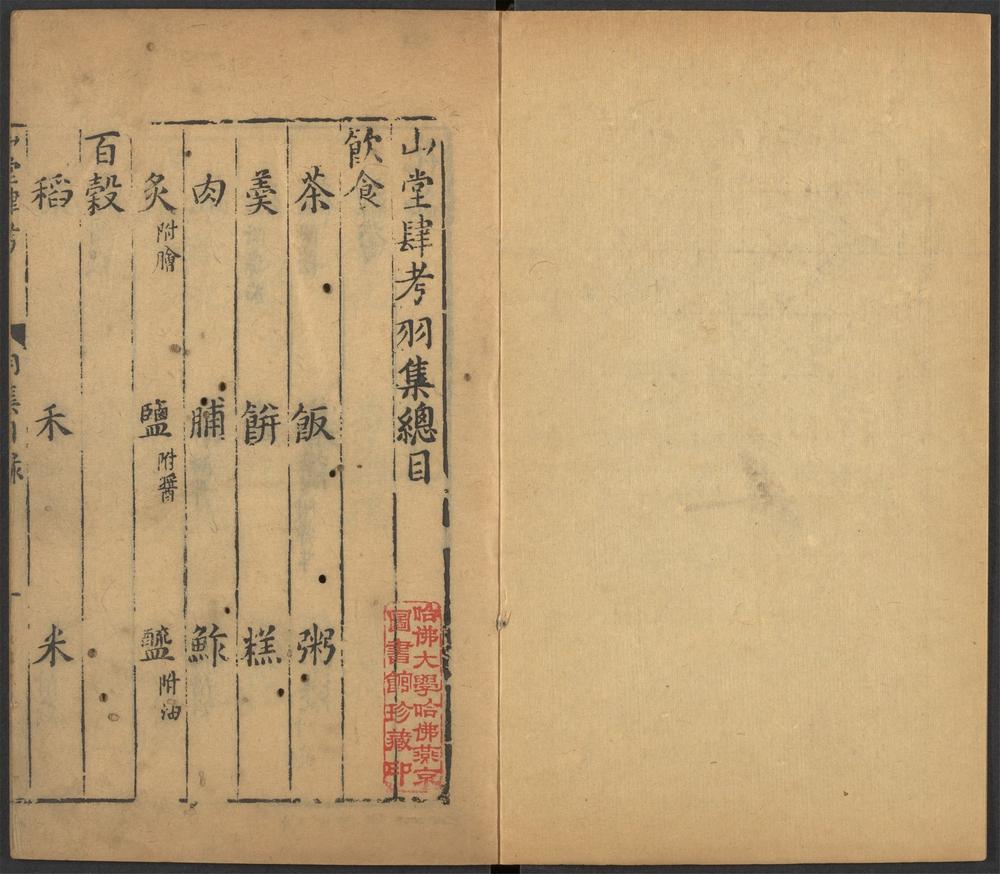 山堂肆考羽集總目
飲食
茶 飯 粥
羮 餅 糕
肉 脯 鮓
炙 附膾 鹽 附醬 醯 附油
百穀
稻 禾 米
哈佛大學哈佛燕京
圖書館珍藏印